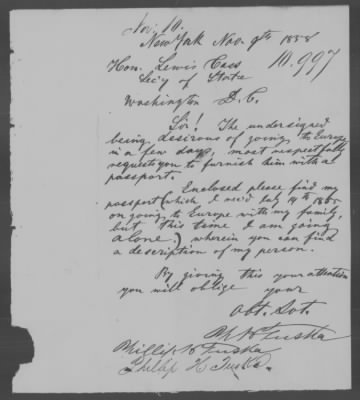 Nov. 10.
New York Nov. 9th 1858
Hon. Lewis Cass
10.997
Sec'y of State
Washington D.C.
Sir! The undersigned
being desirous of going to Europe
in a few days, most respectfully
requests you to furnish him with a
passport.
Enclosed please find my
passport (which I rec'd July 14th
on going to Europe with my family,
but this time I am going
alone,) wherein you can find
a description of my person.
By giving this your attention
you will oblige your
Obt. Svt.
Ph H Tuska
Phillip H Tuska
Philip H Tuska.